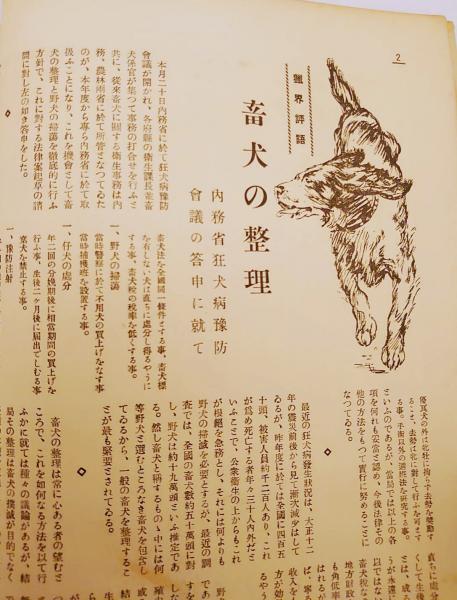 2
獵界評語
畜犬の整理
内務省狂犬病豫防
會議の答申に就て
本月二十日内務省に於て狂犬病豫防
會議が開かれ、各府縣の衛生課長並畜
犬係官が集つて事務の打合せを行ふと
共に、從來畜犬に關する衛生事務は内
務、農林兩省に於て所管となつてゐた
のが、本年度から專ら内務省に於て取
扱ふことになり、これを機會として畜
犬の整理と野犬の掃蕩を徹底的に行ふ
方針で、これに對する法律案起草の諮
問に對し左の如き答申をした。
畜犬法を全國同一條件とする事、畜犬標
を有しない犬は直ちに處分し得るやうに
する事、畜犬税の税率を低くする事。
一、野犬の掃蕩
當時警察に於て不用犬の買上げをなす事
當時捕獲班を設置する事。
一、仔犬の處分
年二回の分娩期後に相當期間の買上げを
行ふ事、生後二ケ月後に届出でしむる事
棄犬を禁止する事。
一、豫防注射
優良犬の外は牝牡に拘らず去勢を奬勵す
ること、去勢は牝に對して行ふを可とす
る事。手術以外の避妊法を研究する事。
といふのであるが、當局では以上の各
項を何れも妥當と認め、今後法律その
他の方法をもつて實行に努めることに
なつてゐる。
最近の狂犬病發生狀況は、大正十二
年の震災前後から見て漸次減少はして
ゐるが、昨年度に於ては全國に四百五
十頭、被害人員約千二百人あり、これ
が爲め死亡する者年々二十人内外だと
いふことで、公衆衛生の上からもこれ
が根絶を急務とし、それには何よりも
野犬の掃滅を必要とするが、最近の調
査では、全國の畜犬數約五十萬頭に對
し、野犬は約十九萬頭といふ推定であ
る。然し畜犬と稱するもの﹅中には何
等野犬と選むところなき畜犬を包含し
てゐるから、一般の畜犬を整理するこ
とが最も緊要とされてゐる。
畜犬の整理は常に心ある者の望むと
ころで、これを如何なる方法を以て行
ふかに就ては種々の議論があるが、結
局その整理は畜犬の撲滅が目的でなく